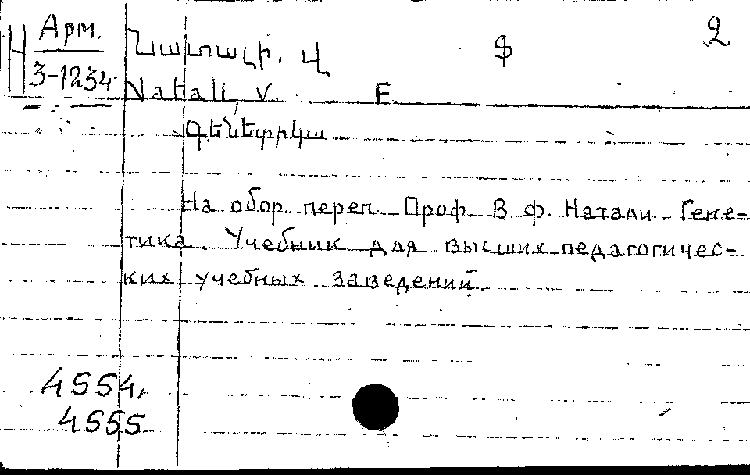 Арм.
3-1234
2
Նատալի, Վ Ֆ
Natali, V. F
Գենետիկա
На обор. переп. Проф. В. Ф. Натали. Гене-
тика. Учебник для высших педагогичес-
ких учебных заведений.
4554,
4555